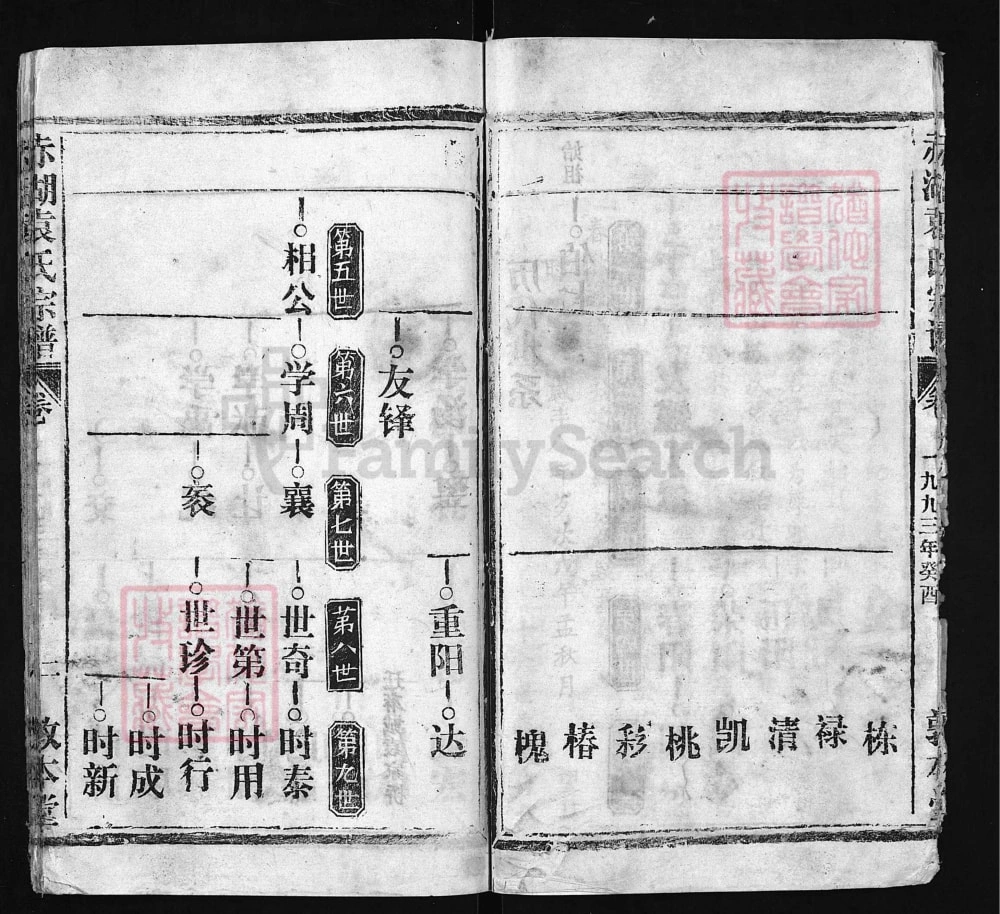 赤湖袁氏宗谱
卷
一九九三年癸酉
敦本堂
栋
禄
清
凯
桃
彩
椿
槐
重阳
达
友铎
第五世
第六世
第七世
第八世
第九世
相公
学周
襄
世奇
时泰
世第
时用
衮
世珍
时行
时成
时新
赤湖袁氏宗谱
卷
敦本堂
FamilySearch